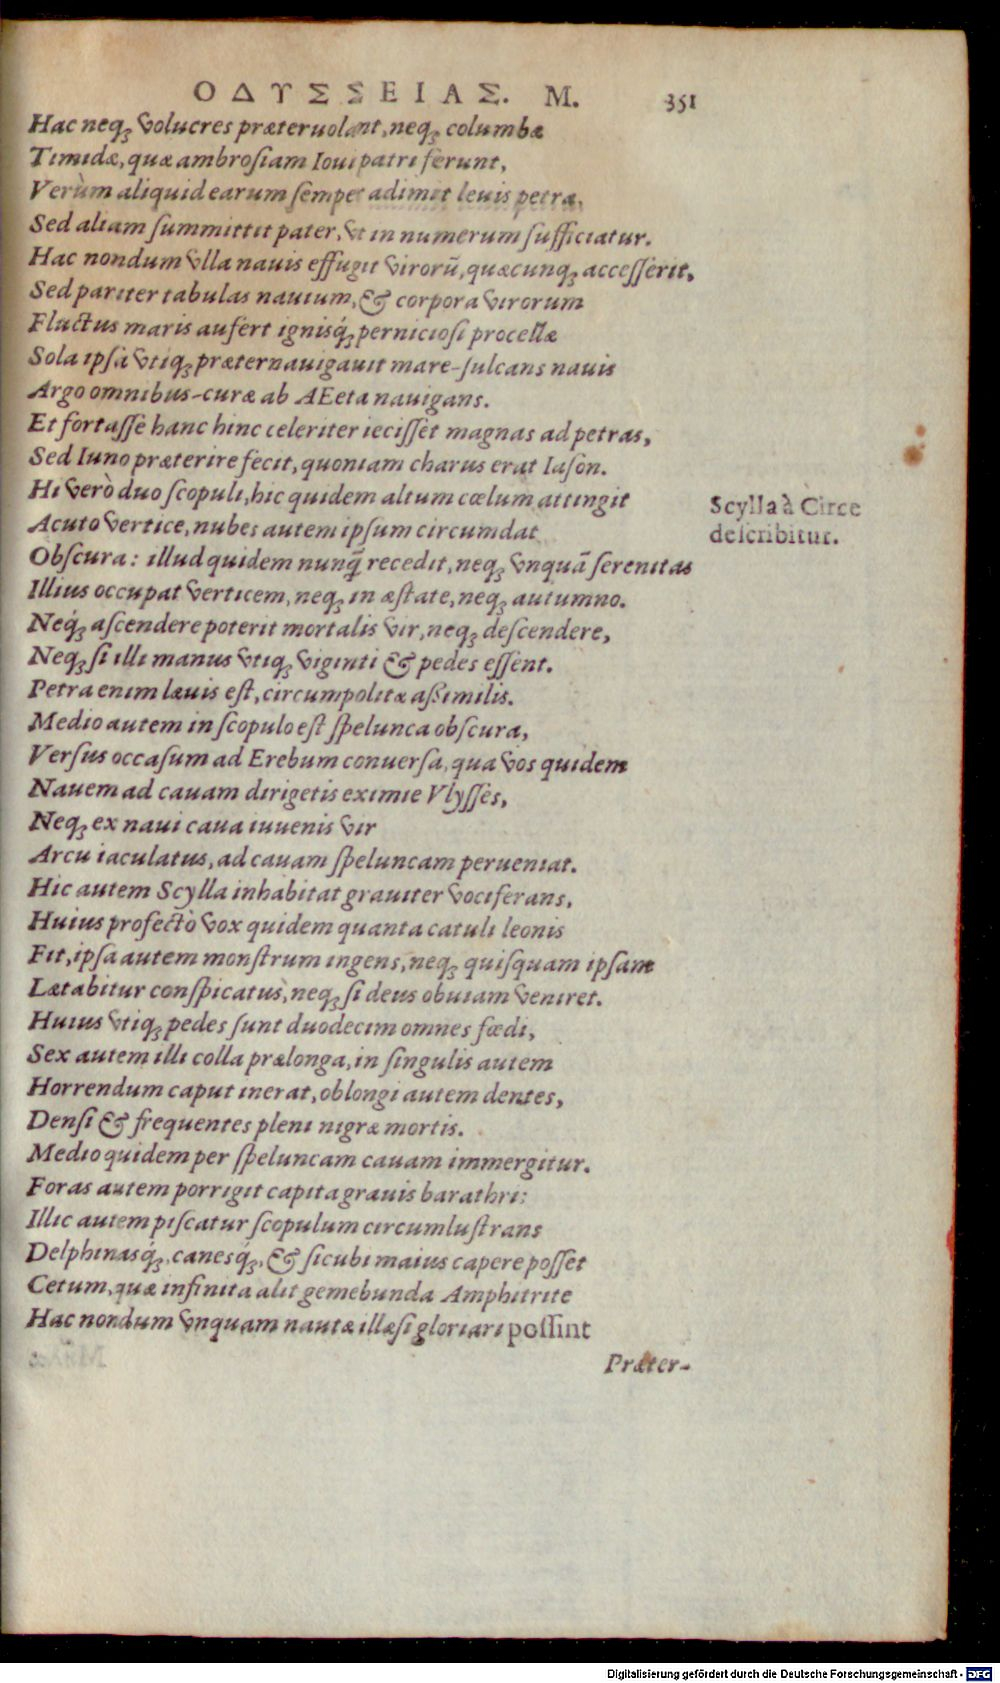 ΟΔΥΣΣΕΙΑΣ. M. 351
Hac neq; volucres præteruolant, neq; columbæ
Timidæ, quæ ambrosiam Ioui patri ferunt,
Verùm aliquid earum semper adimit leuis petra,
Sed aliam summittit pater, vt in numerum sufficiatur.
Hac nondum vlla nauis effugit virorũ, quæcunq; accesserit,
Sed pariter tabulas nauium, & corpora virorum
Fluctus maris aufert ignisq́; perniciosi procellæ
Sola ipsa vtiq; præternauigauit mare-sulcans nauis
Argo omnibus-curæ ab AEeta nauigans.
Et fortasse hanc hinc celeriter iecisset magnas ad petras,
Sed Iuno præterire fecit, quoniam charus erat Iason.
Hi verò duo scopuli, hic quidem altum cœlum attingit
Scylla à Circe
Acuto vertice, nubes autem ipsum circumdat
describitur.
Obscura: illud quidem nunq̃ recedit, neq; vnquã serenitas
Illius occupat verticem, neq; in æstate, neq; autumno.
Neq́; ascendere poterit mortalis vir, neq; descendere,
Neq; si illi manus vtiq; viginti & pedes essent.
Petra enim læuis est, circumpolitæ aßimilis.
Medio autem in scopulo est spelunca obscura,
Versus occasum ad Erebum conuersa, qua vos quidem
Nauem ad cauam dirigetis eximie Vlysses,
Neq; ex naui caua iuuenis vir
Arcu iaculatus, ad cauam speluncam perueniat.
Hic autem Scylla inhabitat grauiter vociferans,
Huius profectò vox quidem quanta catuli leonis
Fit, ipsa autem monstrum ingens, neq; quisquam ipsam
Lætabitur conspicatus, neq; si deus obuiam veniret.
Huius vtiq; pedes sunt duodecim omnes fœdi,
Sex autem illi colla prælonga, in singulis autem
Horrendum caput inerat, oblongi autem dentes,
Densi & frequentes pleni nigræ mortis.
Medio quidem per speluncam cauam immergitur.
Foras autem porrigit capita grauis barathri:
Illic autem piscatur scopulum circumlustrans
Delphinasq́;, canesq́;, & sicubi maius capere posset
Cetum, quæ infinita alit gemebunda Amphitrite
Hac nondum vnquam nautæ illæsi gloriari possint
Præter-
Digitalisierung gefördert durch die Deutsche Forschungsgemeinschaft - DFG